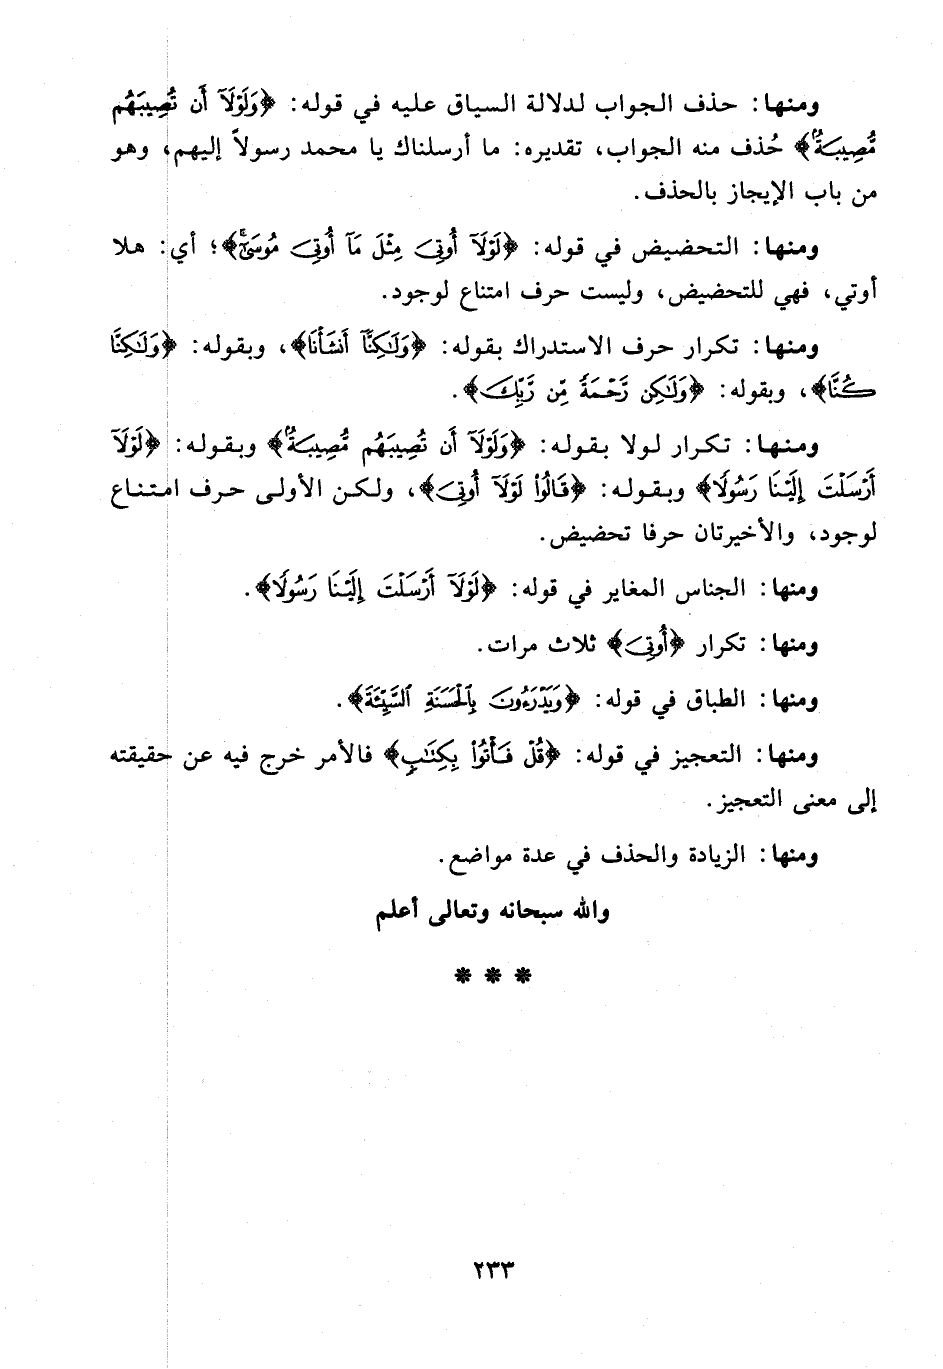 ومنها: حذف الجواب لدلالة السياق عليه في قوله: ﴿وَلَوْلَآ أَن تُصِيبَهُم
مُّصِيبَةٌۢ﴾ حُذف منه الجواب، تقديره: ما أرسلناك يا محمد رسولاً إليهم، وهو
من باب الإيجاز بالحذف.
ومنها: التحضيض في قوله: ﴿لَوْلَآ أُوتِىَ مِثْلَ مَآ أُوتِىَ مُوسَىٰٓۚ﴾؛ أي: هلا
أوتي، فهي للتحضيض، وليست حرف امتناع لوجود.
ومنها: تكرار حرف الاستدراك بقوله: ﴿وَلَٰكِنَّآ أَنشَأْنَا﴾، وبقوله: ﴿وَلَٰكِنَّا
كُنَّا﴾، وبقوله: ﴿وَلَٰكِن رَّحْمَةً مِّن رَّبِّكَ﴾.
ومنها: تكرار لولا بقوله: ﴿وَلَوْلَآ أَن تُصِيبَهُم مُّصِيبَةٌۢ﴾ وبقوله: ﴿لَوْلَآ
أَرْسَلْتَ إِلَيْنَا رَسُولًا﴾ وبقوله: ﴿قَالُوا۟ لَوْلَآ أُوتِىَ﴾، ولكن الأولى حرف امتناع
لوجود، والأخيرتان حرفا تحضيض.
ومنها: الجناس المغاير في قوله: ﴿لَوْلَآ أَرْسَلْتَ إِلَيْنَا رَسُولًا﴾.
ومنها: تكرار ﴿أُوتِىَ﴾ ثلاث مرات.
ومنها: الطباق في قوله: ﴿وَيَدْرَءُونَ بِٱلْحَسَنَةِ ٱلسَّيِّئَةَ﴾.
ومنها: التعجيز في قوله: ﴿قُلْ فَأْتُوا۟ بِكِتَٰبٍ﴾ فالأمر خرج فيه عن حقيقته
إلى معنى التعجيز.
ومنها: الزيادة والحذف في عدة مواضع.
والله سبحانه وتعالى أعلم
* * *
٢٣٣